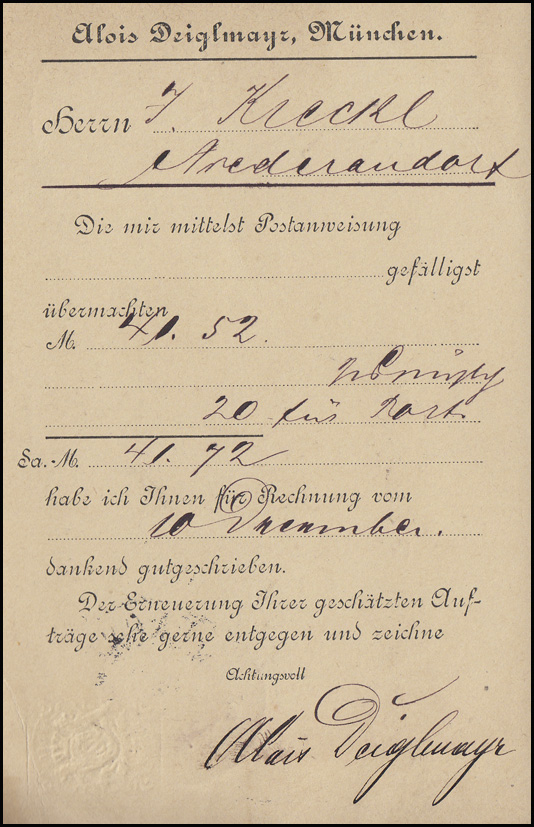 Alois Deiglmayr, München.
Herrn J. Kreckl
Niederaudorf
Die mir mittelst Postanweisung
gefälligst
übermachten
M. 41. 52.
20 für Port.
Sa.-M. 41. 72
habe ich Ihnen für Rechnung vom
10 Dezember.
dankend gutgeschrieben.
Der Erneuerung Ihrer geschätzten Auf-
träge sehe gerne entgegen und zeichne
Achtungsvoll
Alois Deiglmayr